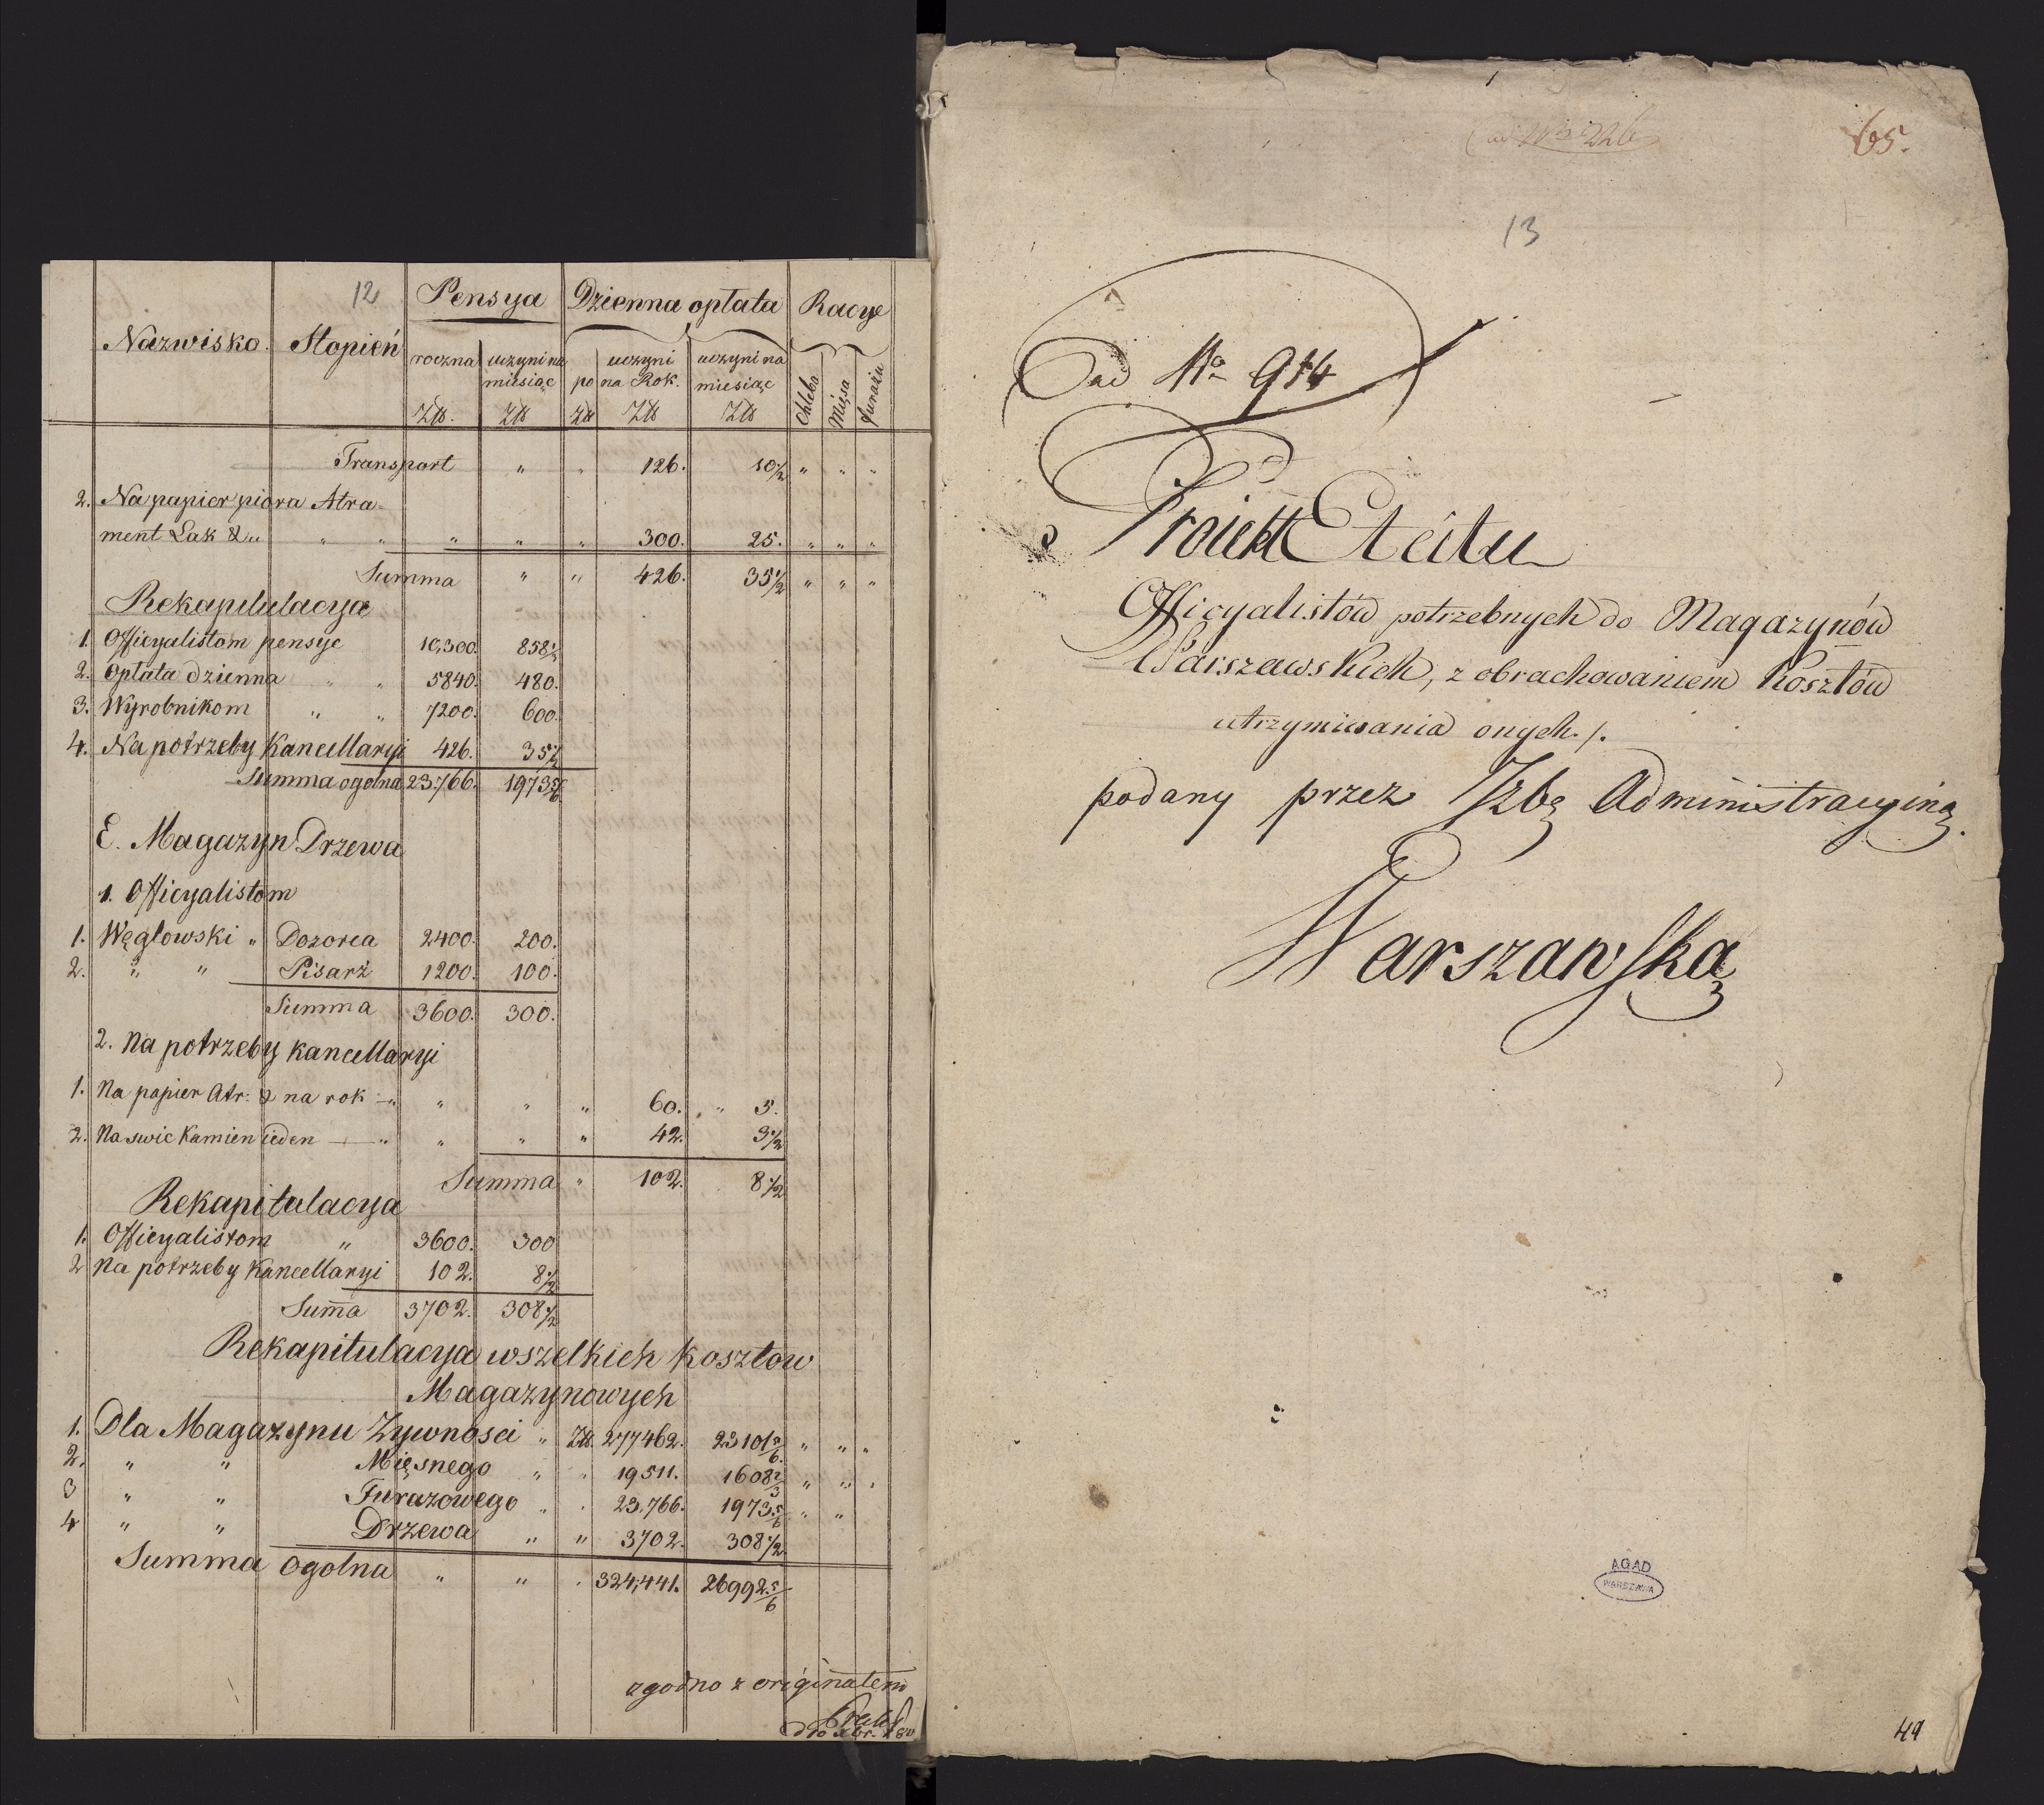 12
Nazwisko. Stopień Pensya Dzienna opłata Racye
roczna uczyni na miesiąc po uczyni na Rok. uczyni na miesiąc Chleba Mięsa furażu
Złł. Złł Złł Złł Złł
Transport " " 126. 10 1/2 " " "
2. Na papier piora Atra-
ment Lak & " " " " " " 300. 25. " " "
Summa " " 426. 35 1/2 " " "
Rekapitulacya
1. Officyalistom pensye 10,300. 858 1/3
2. Opłata dzienna " " 5840. 480.
3. Wyrobnikom " " 7200. 600.
4. Na potrzeby Kancellaryi 426. 35 1/2
Summa ogolna 23.766. 1973 5/6
E. Magazyn Drzewa
1. Officyalistom
1. Węglowski " Dozorca 2400. 200.
2. " " Pisarz 1200. 100.
Summa 3600. 300.
2. Na potrzeby kancellaryi
1. Na papier Atr: & na rok " " " " 60. " 5.
2. Na swic Kamien ieden " " " " 42. 3 1/2
Summa " 102. 8 1/2
Rekapitulacya
1. Officyalistom " 3600. 300
2 Na potrzeby Kancellaryi 102. 8 1/2
Suma 3702. 308 1/2
Rekapitulacya wszelkich kosztow
Magazynowych
1. Dla Magazynu Zywnosci " Złł. 277462. 23101 5/6. " " "
2. " " Mięsnego " " 19511. 1608 2/3 " " "
3 " " Furazowego " " 23.766. 1973 5/6 " "
4 " " Drzewa " " 3702. 308 1/2
Summa ogolna " " " 324,441. 26992 5/6
zgodno z originałem
65.
13
ad No 914
Proiekt Etatu
Officyalistów potrzebnych do Magazynów
Warszawskich, z obrachowaniem Kosztów
utrzymiwania onych./.
podany przez Izbę Administracyiną
Warszawską
AGAD
WARSZAWA
49